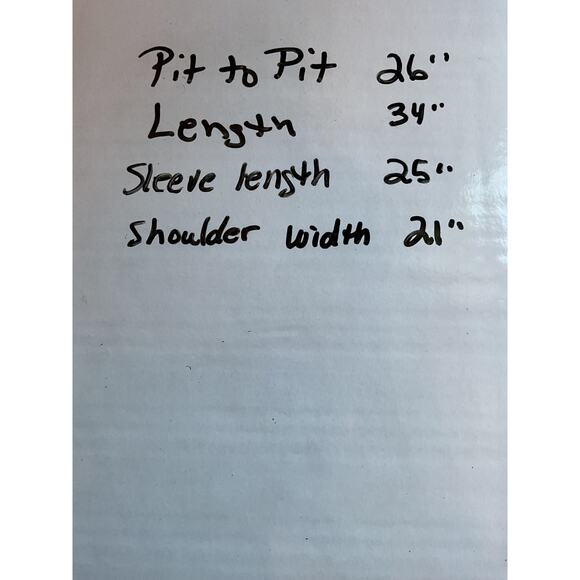 Pit to Pit 26"
Length 34"
Sleeve length 25"
Shoulder width 21"